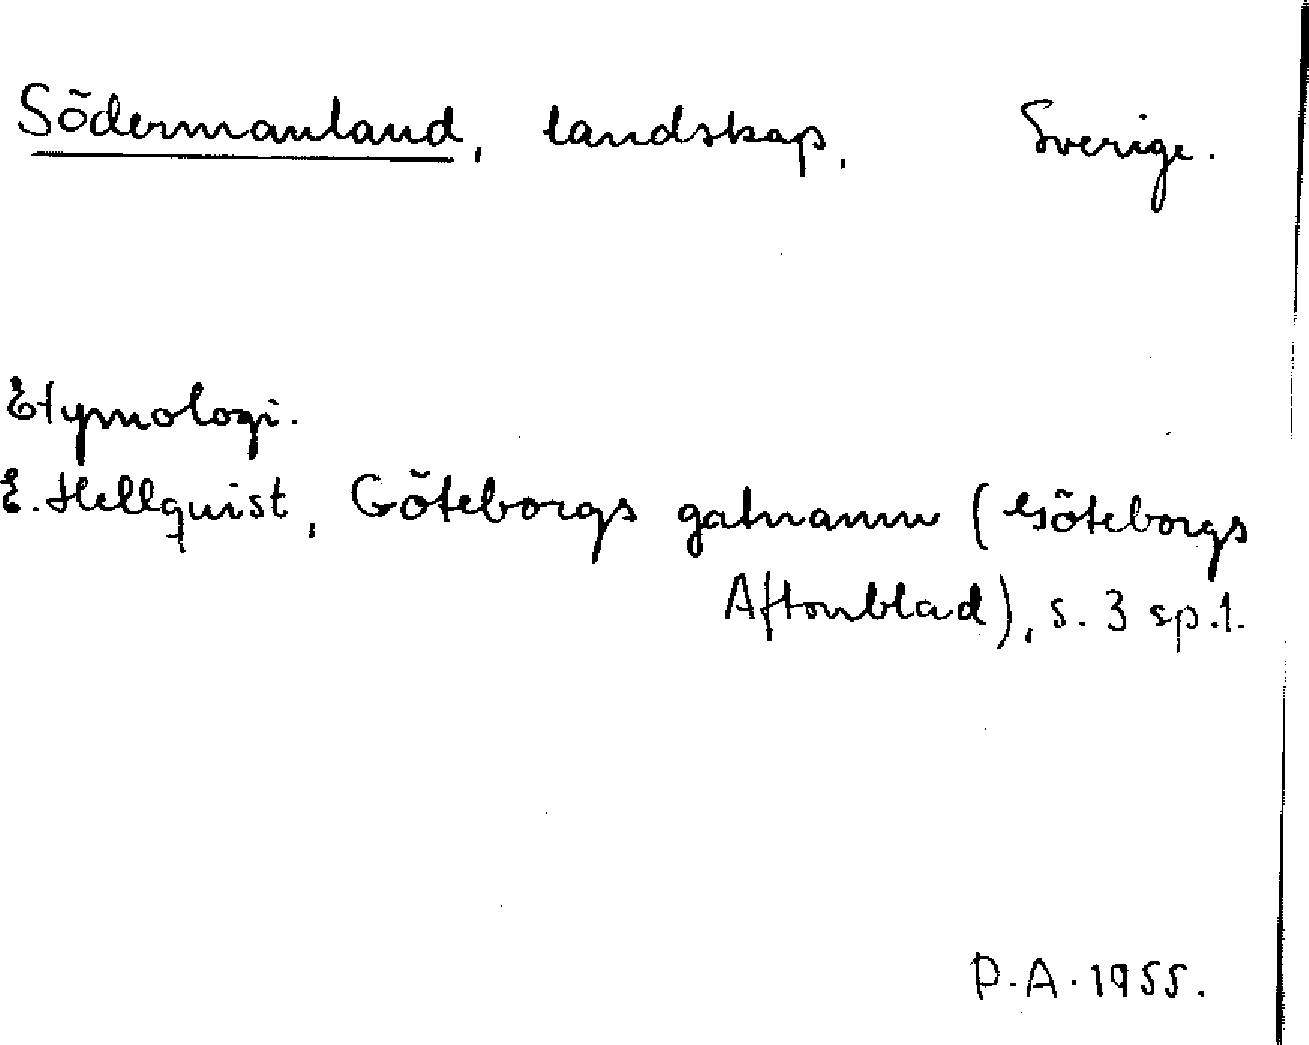 Södermanland, landskap, Sverige.
Etymologi.
E. Hellquist, Göteborgs gatnamn (Göteborgs
Aftonblad), s. 3 sp. 1.
P. A. 1955.